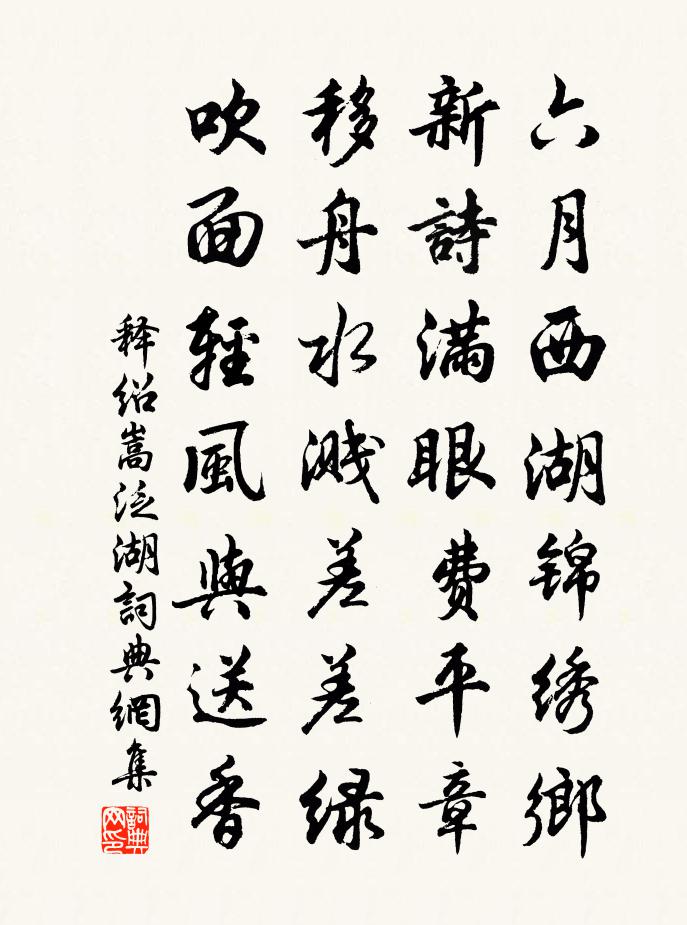 六月西湖锦绣鄉
新詩滿眼費平章
移舟水濺差差绿
吹面輕風與送香
释绍嵩泛湖詞典網集
詞典网印